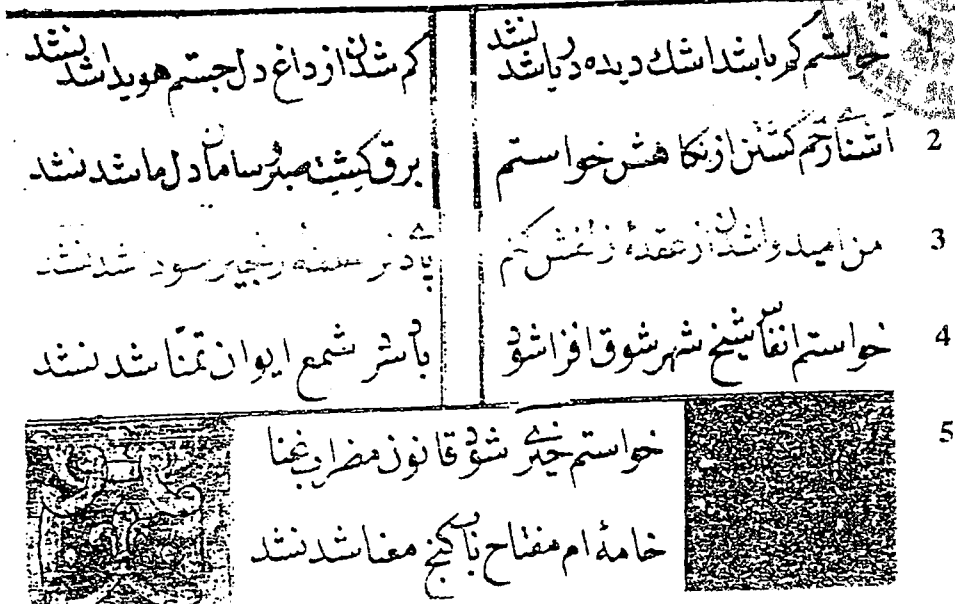 خواستم کریا شد اشك دیده دریا شد نشد
کم شدن از داغ دل جستم هویدا شد نشد
1
آشنا زخم کشتن از نکاهش خواستم
برق کشت صبر سامان دل ما شد نشد
2
من امید وا شدن از عقدهٔ زلفش کنم
باد زنجیر سودا شد نشد
3
خواستم انفاس شیخ شهر شوق افزا شود
باد سر شمع ایوان تمنّا شد نشد
4
خواستم شود قانون مضراب غنا
5
خامهٔ ام مفتاح باب کنج معنا شد نشد